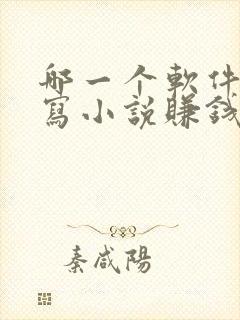 哪一个軟件
寫小説賺錢
秦咸陽